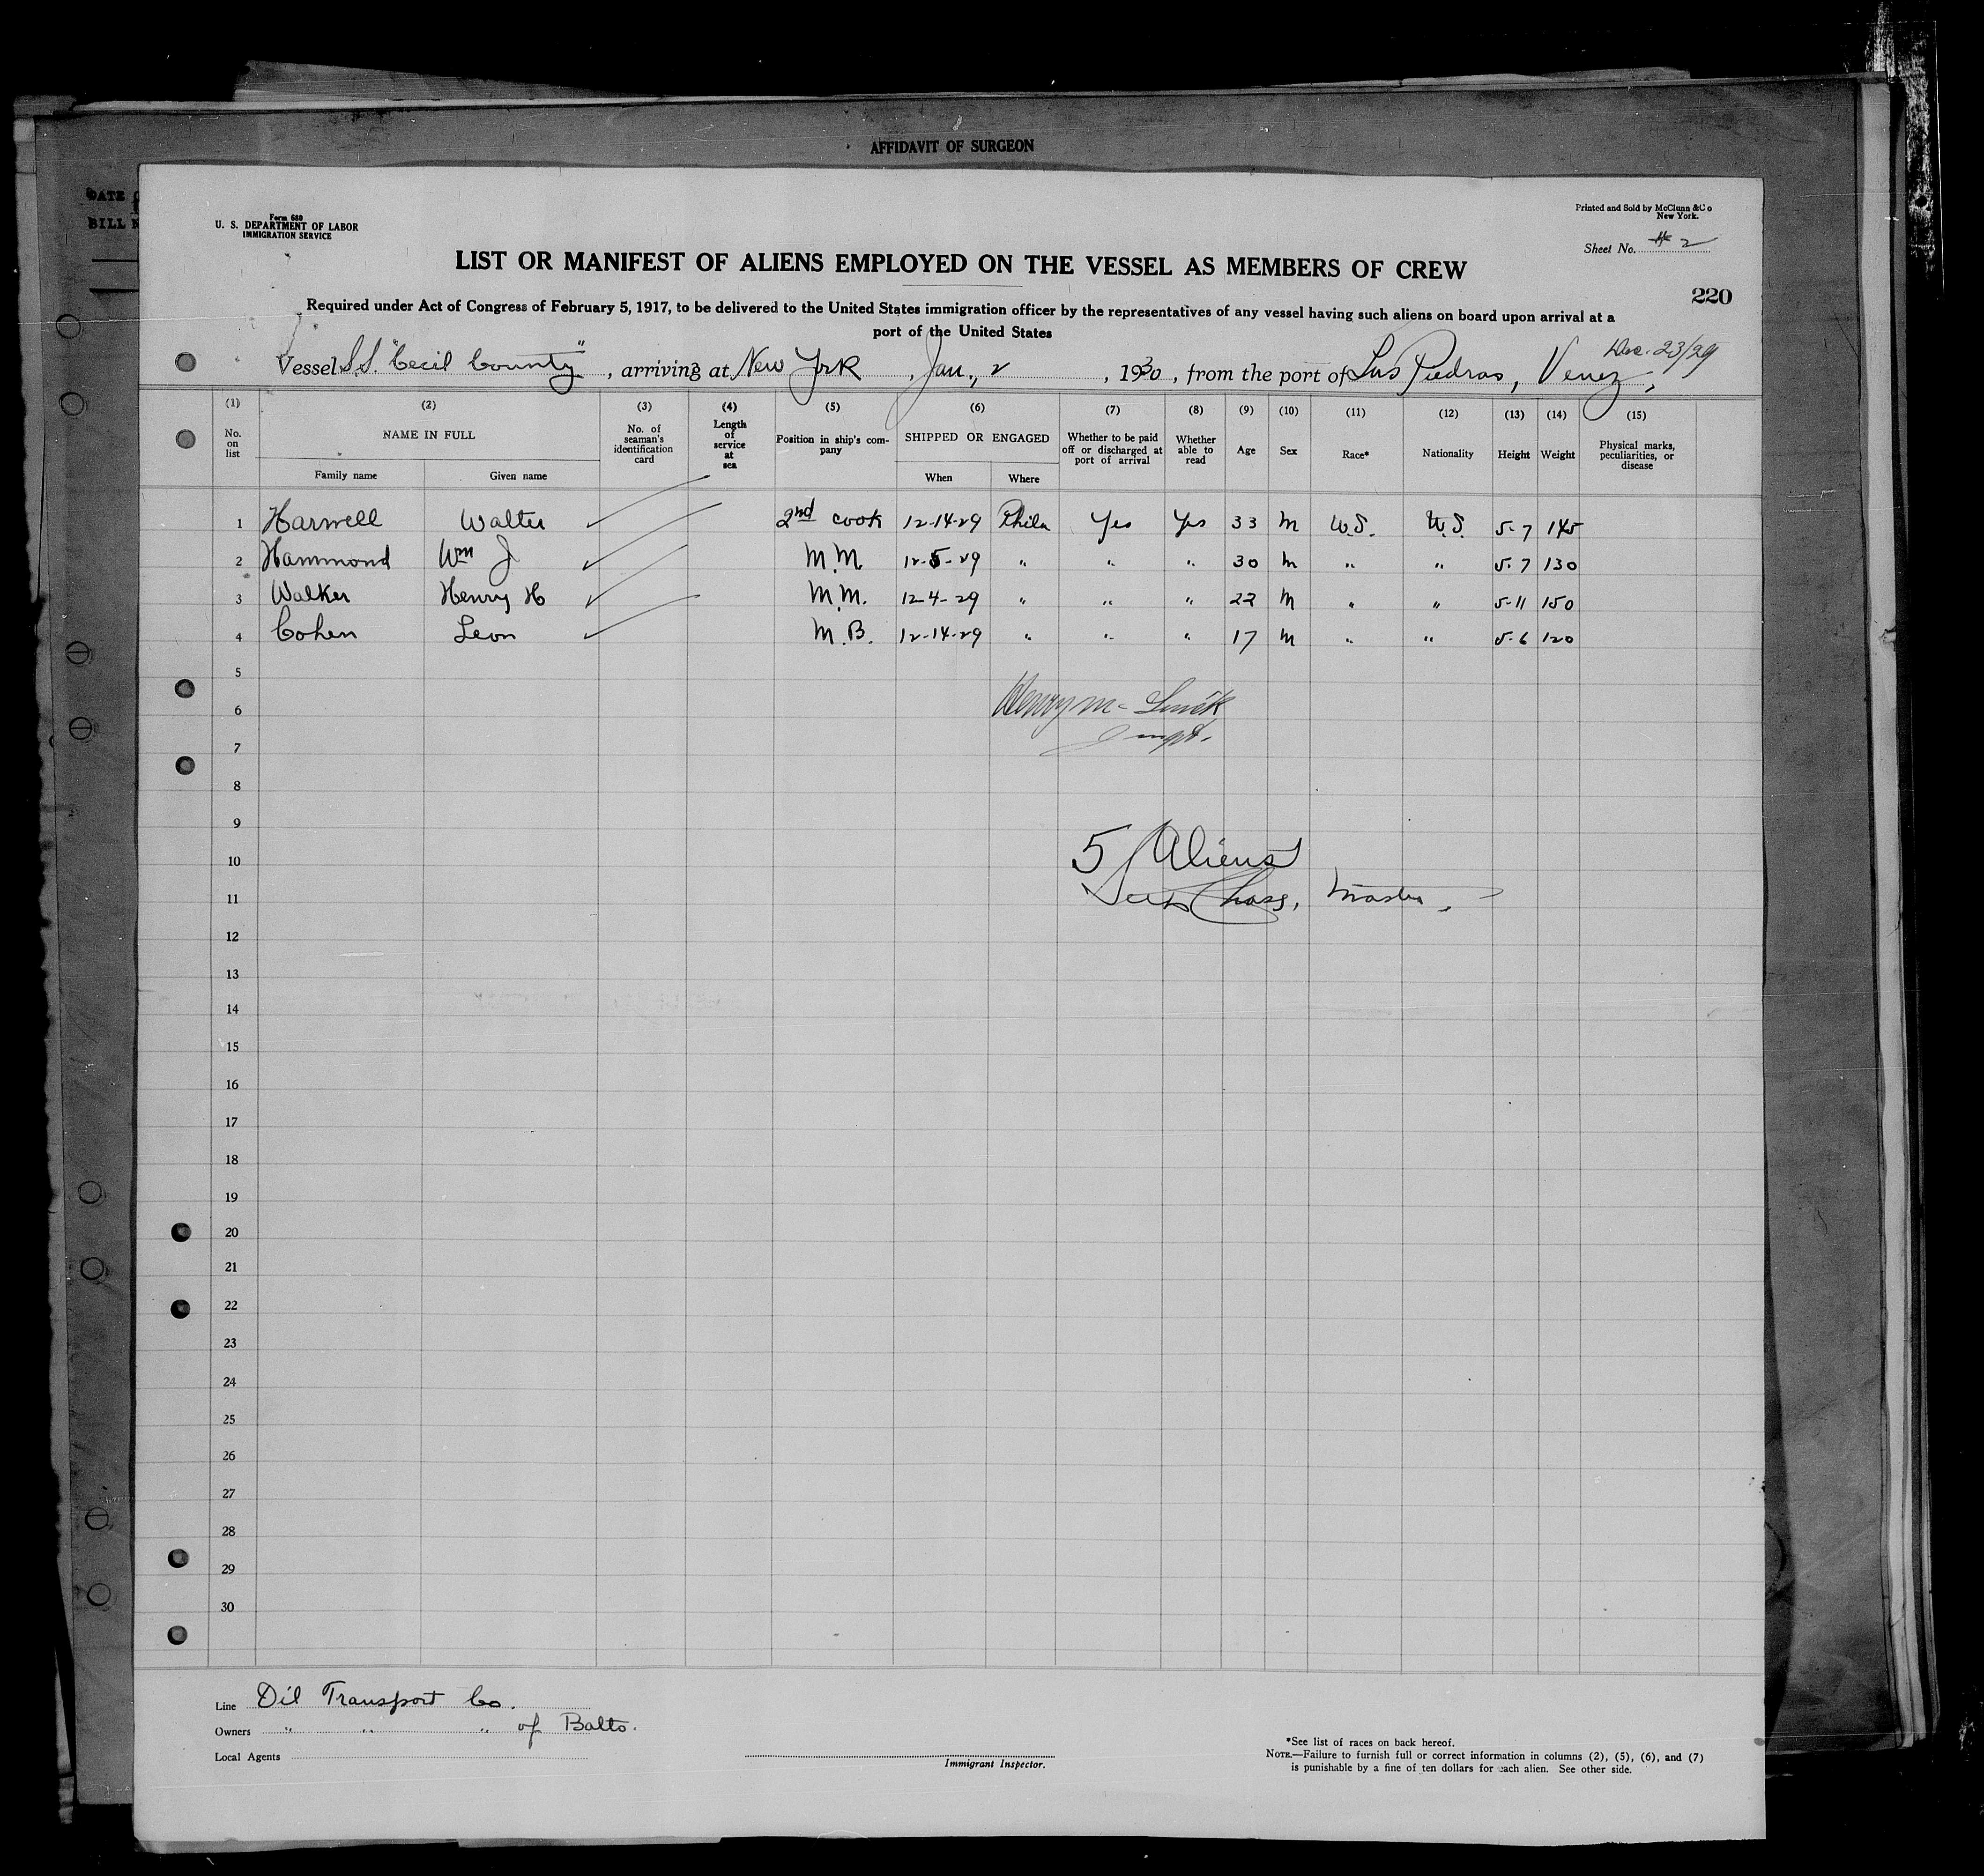 AFFIDAVIT OF SURGEON
DATE
BILL N
Form 680
U. S. DEPARTMENT OF LABOR
IMMIGRATION SERVICE
Printed and Sold by McClunn & Co
New York.
Sheet No. # 2
LIST OR MANIFEST OF ALIENS EMPLOYED ON THE VESSEL AS MEMBERS OF CREW
220
Required under Act of Congress of February 5, 1917, to be delivered to the United States immigration officer by the representatives of any vessel having such aliens on board upon arrival at a
port of the United States
Dec. 23/29
Vessel S.S. "Cecil County", arriving at New York, Jan., 2, 1930, from the port of Las Piedras, Venez.,
(1) (2) (3) (4) (5) (6) (7) (8) (9) (10) (11) (12) (13) (14) (15)
No. on list NAME IN FULL No. of seaman's identification card Length of service at sea Position in ship's company SHIPPED OR ENGAGED Whether to be paid off or discharged at port of arrival Whether able to read Age Sex Race* Nationality Height Weight Physical marks, peculiarities, or disease
Family name Given name When Where
1 Harwell Walter 2nd cook 12-14-29 Phila Yes Yes 33 M U.S. U.S. 5-7 145
2 Hammond Wm J M.M. 12-5-29 " " " 30 M " " 5-7 130
3 Walker Henry H M.M. 12-4-29 " " " 22 M " " 5-11 150
4 Cohen Leon M.B. 12-14-29 " " " 17 M " " 5-6 120
5
6 Henry Mc
7
8
9
10 5 Aliens
11 Chass, Master.
12
13
14
15
16
17
18
19
20
21
22
23
24
25
26
27
28
29
30
Line Oil Transport Co.
Owners " " " of Balto.
Local Agents
Immigrant Inspector.
*See list of races on back hereof.
NOTE.—Failure to furnish full or correct information in columns (2), (5), (6), and (7)
is punishable by a fine of ten dollars for each alien. See other side.